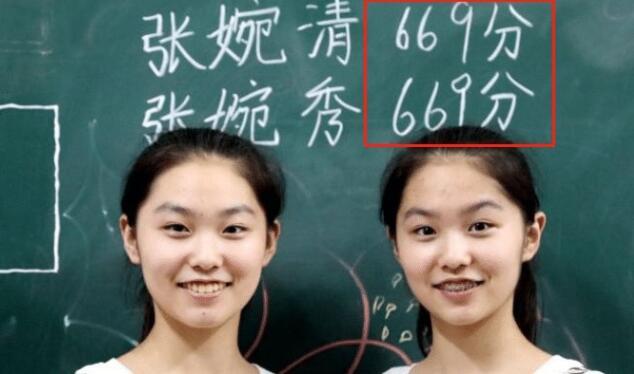 张婉清 669分
张婉秀 669分